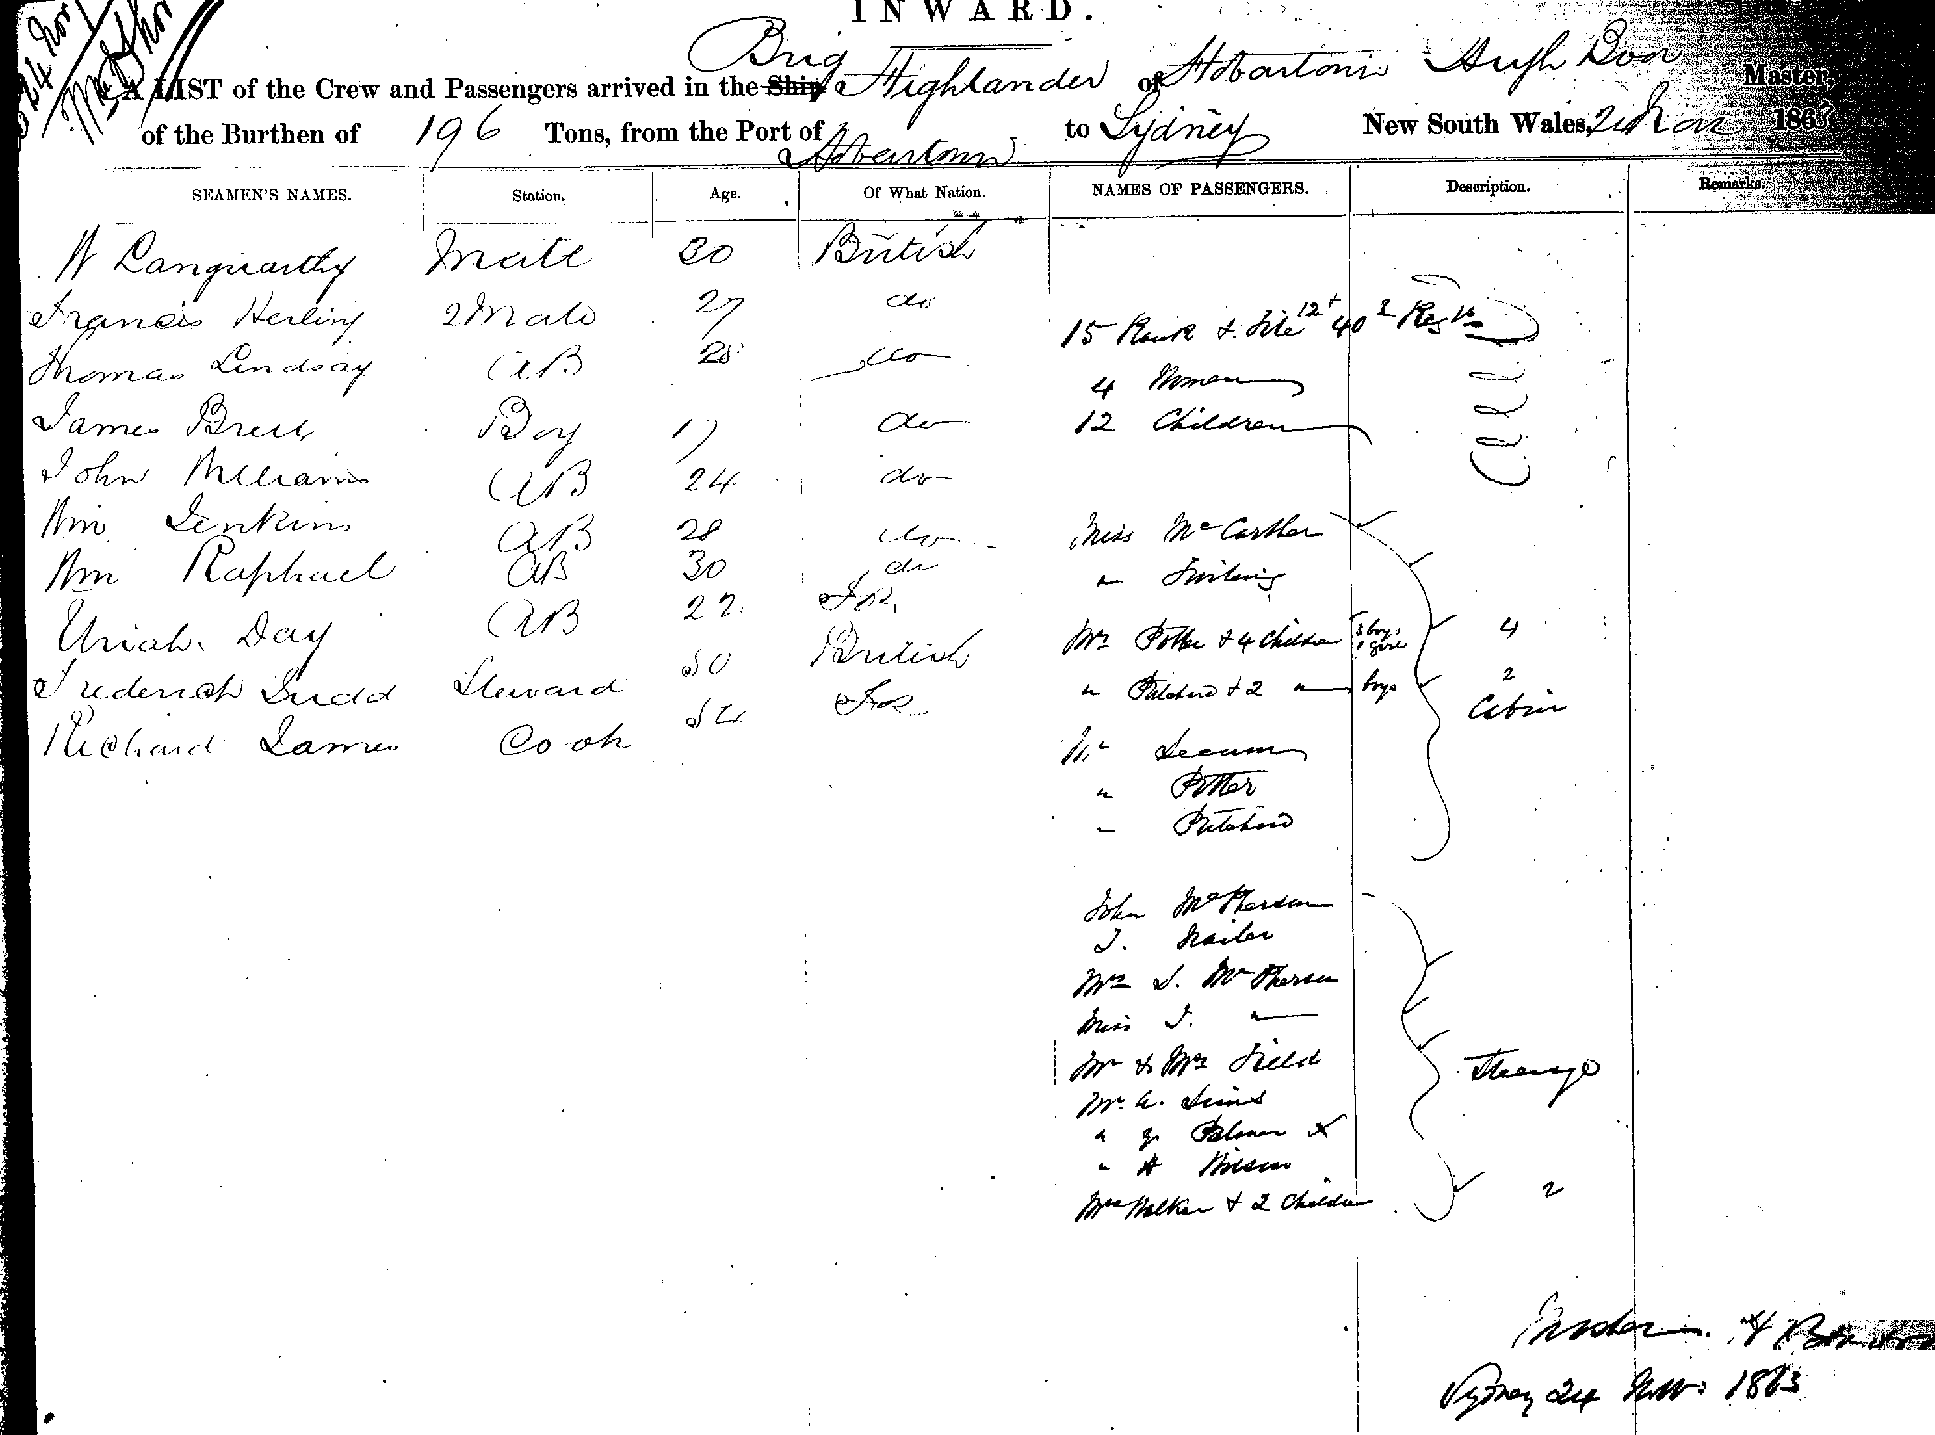 INWARD.
Brig
A LIST of the Crew and Passengers arrived in the Ship Highlander of Hobartown Hugh Master,
of the Burthen of 196 Tons, from the Port of Hobartown to Sydney New South Wales, 24 Nov 186
SEAMEN'S NAMES. Station. Age. Of What Nation. NAMES OF PASSENGERS. Description. Remarks.
W Mate 30 British
Francis 2 Mate 27 do
15 Rank & File 12th 40 2 Regts
Thomas Lindsay AB 28 do
4 Women
James Boy 17 do
12 Children
John Williams AB 24 do
Wm Jenkins AB 28 do
Miss McCarther
Wm Raphael AB 30 do
"
Uriah Day AB 22
Mrs Potter & 4 Children 3 boys 1 girl 4
Frederick Judd Steward 50 British
" Pritchard & 2 " boys 2
Cabin
Richard James Cook 54
Mr
" Potter
" Pritchard
John McPherson
J.
Mrs J. McPherson
Miss J. "
Mr & Mrs Field
Steerage
Mr A. Sims
" G. Palmer x
" H Wilson
Mrs Walker & 2 Children 2
Sydney 24 Nov. 1863